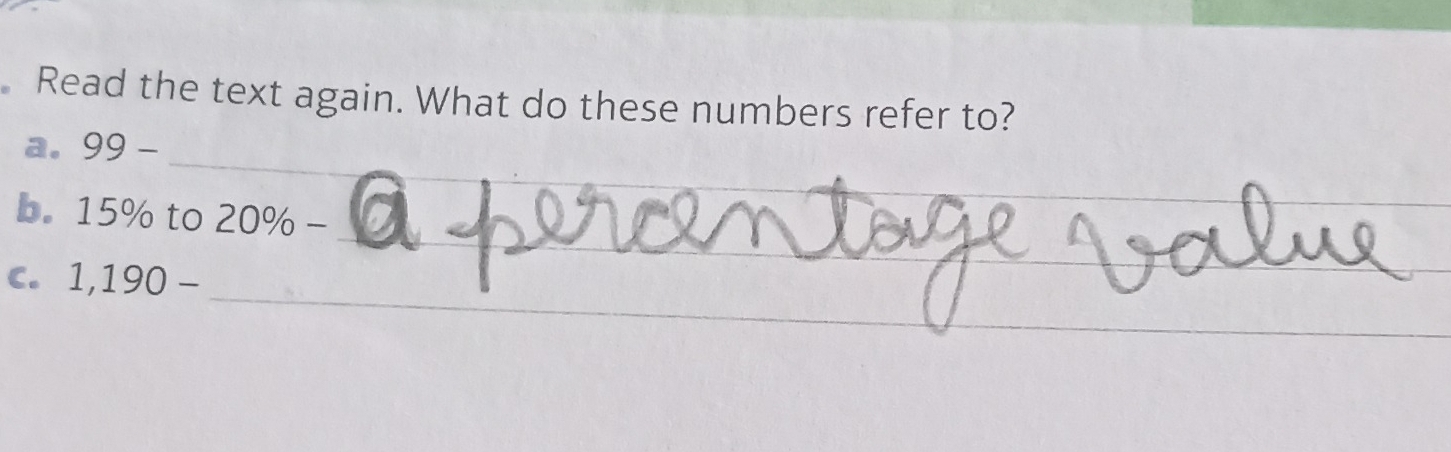 . Read the text again. What do these numbers refer to?
a. 99 –
b. 15% to 20% – a percentage value
c. 1,190 –